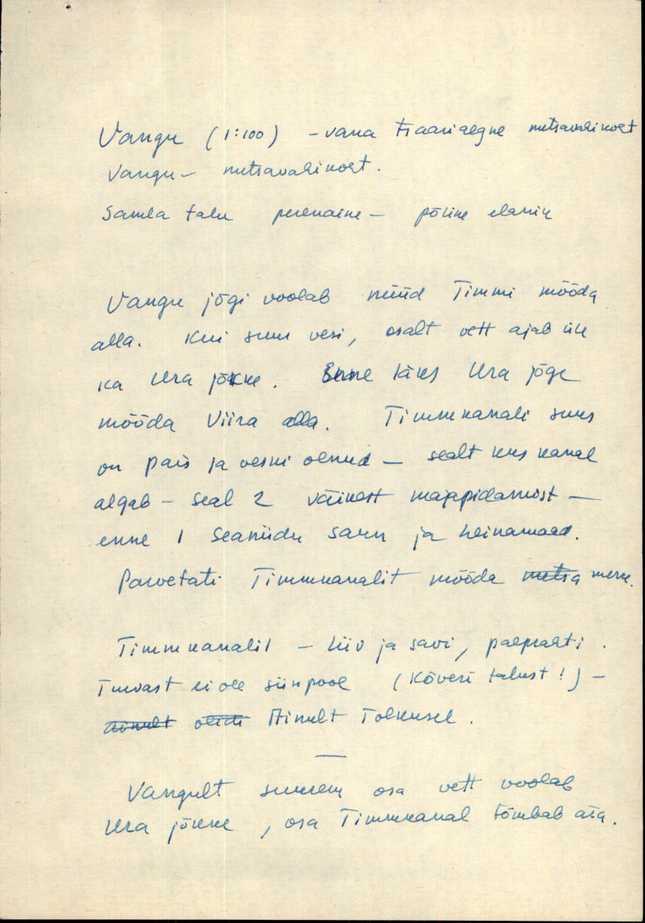 Vangu (1:100) – vana tsaariaegne metsavahikoht
Vangu – metsavahikoht.
Saula talu perenaine – põline elanik
Vangu jõgi voolab nüüd Timmi mööda
alla. Kui suur vesi, osalt vett ajab üle
ka Ura jõkke. Enne käis Ura jõge
mööda Viira alla. Timmkanali suus
on pais ja veski olnud – sealt kus kanal
algab – seal 2 väikest majapidamist –
enne 1 Seaniidu saun ja heinamaad.
Parvetati Timmkanalit mööda metsa merre.
Timmkanalil – liiv ja savi, paepraht.
Turvast ei ole siinpool (Kõveri talust!) –
ainult Ainult Tolkusel.
—
Vangult suurem osa vett voolab
Ura jõkke, osa Timmkanal tõmbab ära.